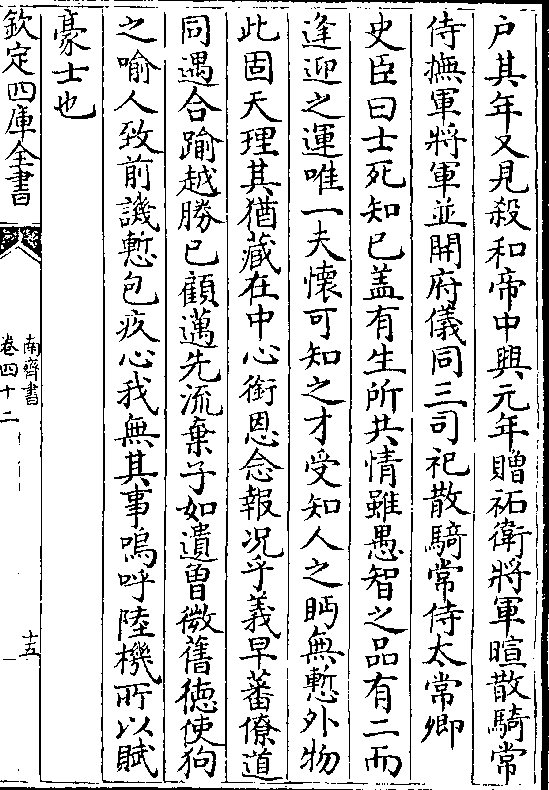 户其年又見殺和帝中興元年贈祏衛將軍暄散騎常
侍撫軍將軍並開府儀同三司祀散騎常侍太常卿
史臣曰士死知已盖有生所共情雖愚智之品有二而
逢迎之運唯一夫懷可知之才受知人之眄無慙外物
此固天理其猶藏在中心銜恩念報况乎義早蕃僚道
同遇合踰越勝已顧邁先流棄子如遺曽微舊徳使狗
之喻人致前譏慙包疚心我無其事嗚呼陸機所以賦
豪士也
欽定四庫全書
南齊書
卷四十二
十五